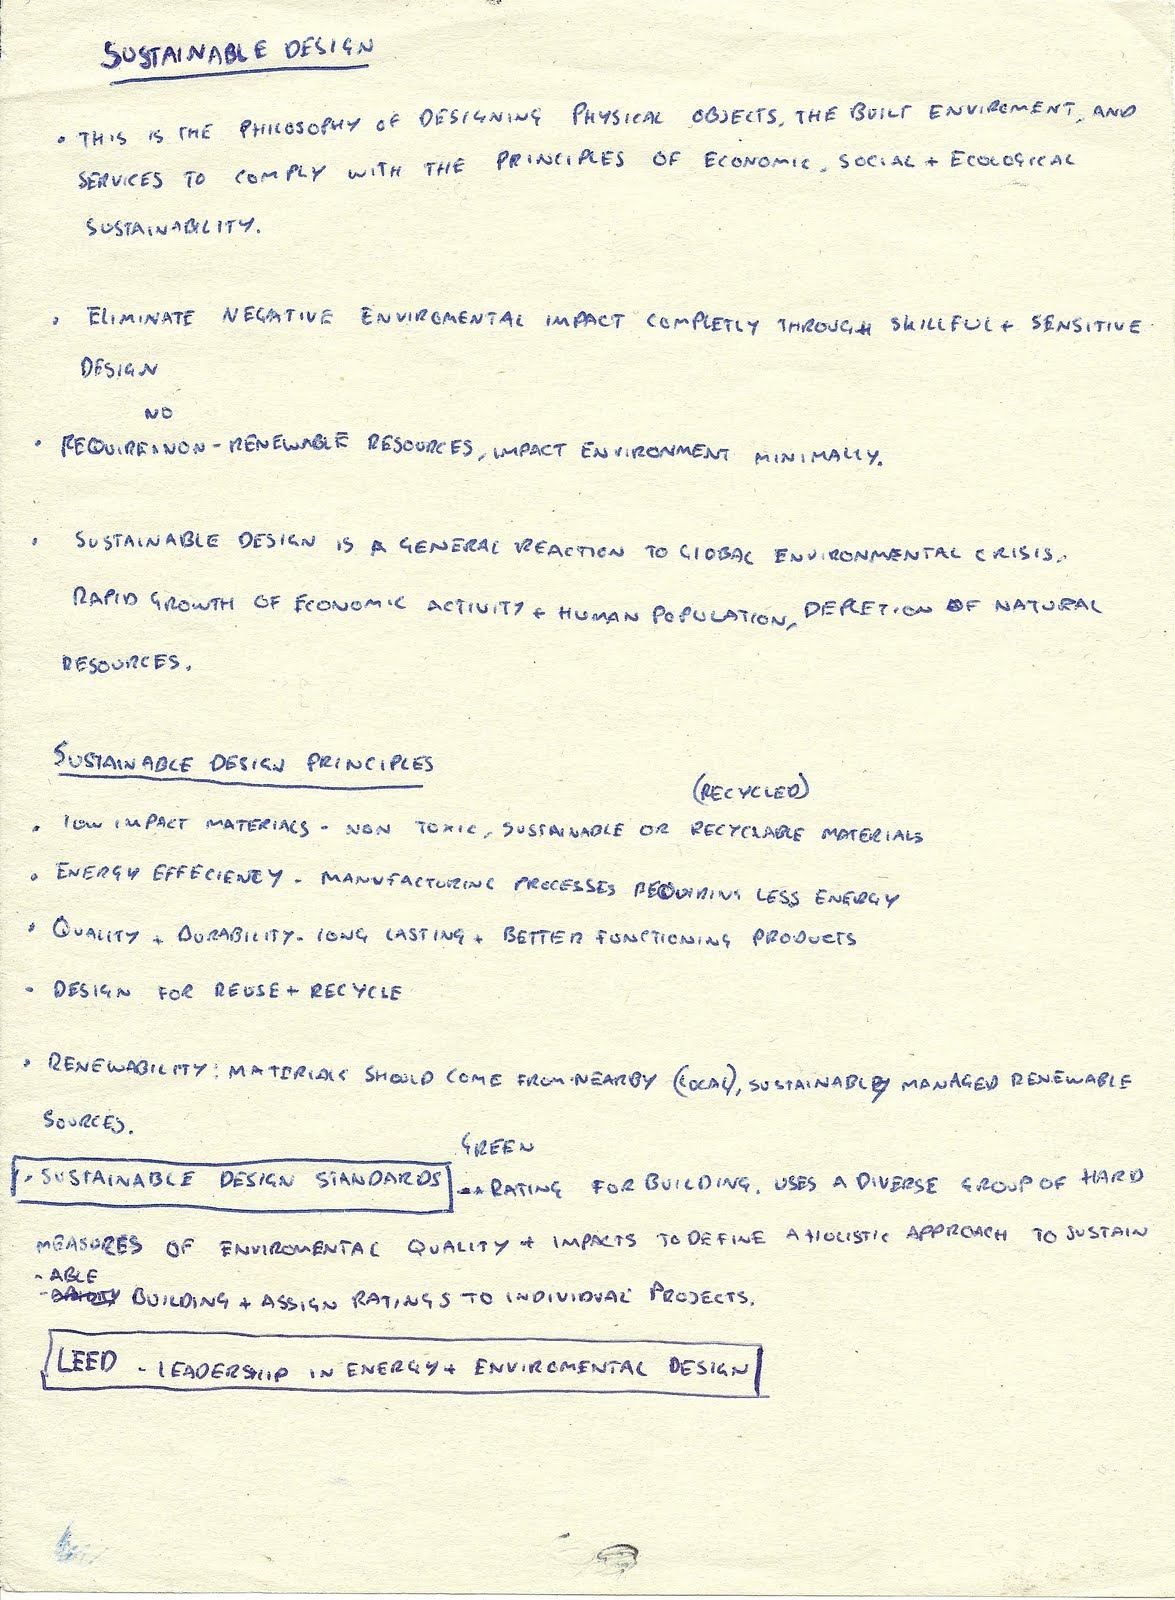 SUSTAINABLE DESIGN
• THIS IS THE PHILOSOPHY OF DESIGNING PHYSICAL OBJECTS, THE BUILT ENVIROMENT, AND
SERVICES TO COMPLY WITH THE PRINCIPLES OF ECONOMIC, SOCIAL + ECOLOGICAL
SUSTAINABILITY.
• ELIMINATE NEGATIVE ENVIROMENTAL IMPACT COMPLETLY THROUGH SKILLFUL + SENSITIVE
DESIGN
NO
• REQUIRE NON-RENEWABLE RESOURCES, IMPACT ENVIRONMENT MINIMALLY.
• SUSTAINABLE DESIGN IS A GENERAL REACTION TO GLOBAL ENVIRONMENTAL CRISIS.
RAPID GROWTH OF ECONOMIC ACTIVITY + HUMAN POPULATION, DEPLETION OF NATURAL
RESOURCES.
SUSTAINABLE DESIGN PRINCIPLES
(RECYCLED)
• LOW IMPACT MATERIALS - NON TOXIC, SUSTAINABLE OR RECYCLABLE MATERIALS
• ENERGY EFFECIENCY - MANUFACTURING PROCESSES REQUIRING LESS ENERGY
• QUALITY + DURABILITY - LONG LASTING + BETTER FUNCTIONING PRODUCTS
• DESIGN FOR REUSE + RECYCLE
• RENEWABILITY: MATERIALS SHOULD COME FROM NEARBY (LOCAL), SUSTAINABLY MANAGED RENEWABLE
SOURCES.
GREEN
• SUSTAINABLE DESIGN STANDARDS - RATING FOR BUILDING. USES A DIVERSE GROUP OF HARD
MEASURES OF ENVIROMENTAL QUALITY + IMPACTS TO DEFINE A HOLISTIC APPROACH TO SUSTAIN
- ABLE
BUILDING + ASSIGN RATINGS TO INDIVIDUAL PROJECTS.
LEED - LEADERSHIP IN ENERGY + ENVIROMENTAL DESIGN